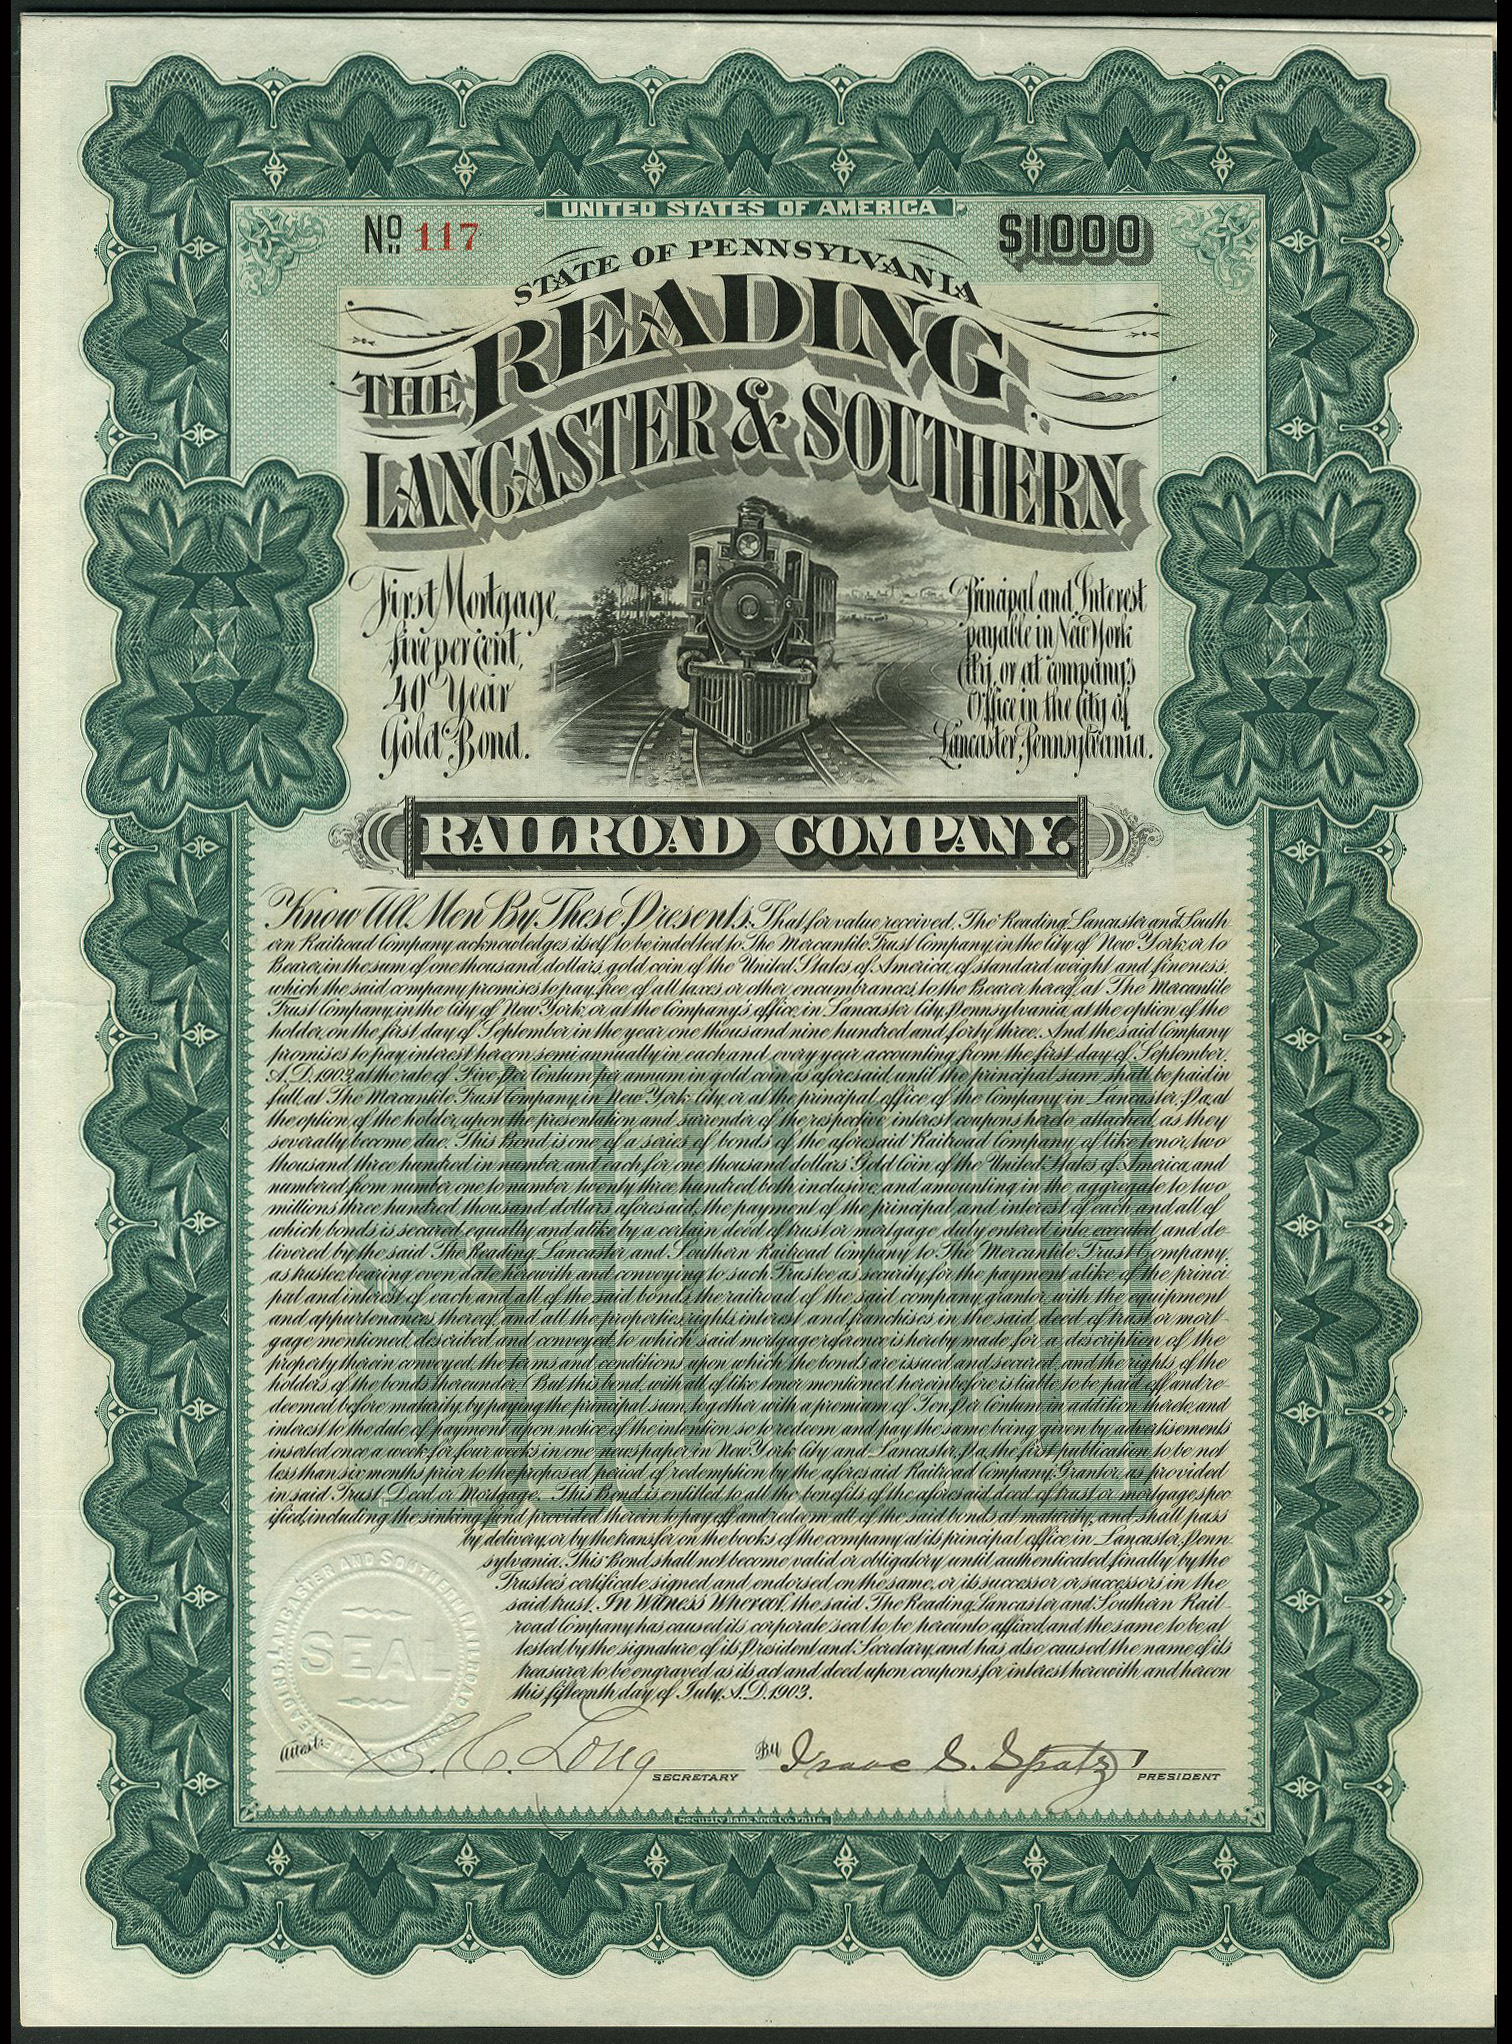 UNITED STATES OF AMERICA
No 117
$1000
STATE OF PENNSYLVANIA
THE READING
LANCASTER & SOUTHERN
First Mortgage,
Five per cent,
40 Year
Gold Bond.
Principal and Interest
payable in New York
City, or at company's
Office in the City of
Lancaster, Pennsylvania.
RAILROAD COMPANY.
Know All Men By These Presents: That for value received, The Reading, Lancaster and South
ern Railroad Company acknowledges itself to be indebted to The Mercantile Trust Company, in the City of New York, or to
Bearer, in the sum of one thousand dollars, gold coin of the United States of America, of standard weight and fineness,
which the said company promises to pay, free of all taxes or other encumbrances, to the Bearer hereof, at The Mercantile
Trust Company, in the City of New York, or at the Company's office, in Lancaster City, Pennsylvania, at the option of the
holder, on the first day of September in the year one thousand nine hundred and forty three. And the said Company
promises to pay interest hereon, semi annually in each and every year accounting from the first day of September,
A.D. 1903, at the rate of Five Per Centum per annum in gold coin as aforesaid, until the principal sum shall be paid in
full, at The Mercantile Trust Company, in New York City, or at the principal office of the Company in Lancaster, Pa., at
the option of the holder, upon the presentation and surrender of the respective interest coupons hereto attached, as they
severally become due. This Bond is one of a series of bonds of the aforesaid Railroad Company of like tenor, two
thousand three hundred in number, and each for one thousand dollars Gold Coin of the United States of America, and
numbered from number one to number twenty three hundred, both inclusive, and amounting in the aggregate to two
millions three hundred thousand dollars aforesaid, the payment of the principal and interest of each and all of
which bonds is secured equally and alike by a certain deed of trust or mortgage duly entered into, executed, and de-
livered by the said The Reading, Lancaster and Southern Railroad Company to The Mercantile Trust Company,
as trustee, bearing even date herewith and conveying to such Trustee as security, for the payment alike of the princi
pal and interest of each and all of the said bonds, the railroad of the said company, grantor, with the equipment
and appurtenances thereof, and all the properties, rights, interest and franchises in the said deed of trust or mort-
gage mentioned, described and conveyed, to which said mortgage reference is hereby made, for a description of the
property therein conveyed, the terms and conditions upon which the bonds are issued and secured, and the rights of the
holders of the bonds thereunder. But this bond, with all of like tenor mentioned hereinbefore is liable to be paid off and re-
deemed before maturity, by paying the principal sum, together with a premium of Ten Per Centum in addition thereto, and
interest to the date of payment upon notice of the intention so to redeem and pay the same being given by advertisements
inserted once a week for four weeks in one newspaper in New York City and Lancaster, Pa., the first publication to be not
less than six months prior to the proposed period of redemption by the aforesaid Railroad Company, Grantor, as provided
in said Trust Deed or Mortgage. This Bond is entitled to all the benefits of the aforesaid deed of trust or mortgage, spec
ified, including the sinking fund provided therein to pay off and redeem all of the said bonds at maturity, and shall pass
by delivery, or by the transfer on the books of the company at its principal office in Lancaster, Penn-
sylvania. This Bond shall not become valid or obligatory until authenticated, finally by the
Trustee's certificate, signed and endorsed on the same, or its successor, or successors in the
said trust. In Witness Whereof, the said The Reading, Lancaster, and Southern Rail-
road Company has caused its corporate seal to be hereunto affixed, and the same to be at
tested by the signature of its President and Secretary, and has also caused the name of its
treasurer to be engraved as its act and deed, upon coupons, for interest herewith and hereon
this fifteenth day of July, A.D. 1903.
THE READING, LANCASTER AND SOUTHERN RAILROAD COMPANY
SEAL
Attest: S. C. Long SECRETARY
By Isaac S. Spatz PRESIDENT
Security Bank Note Co. Phila.